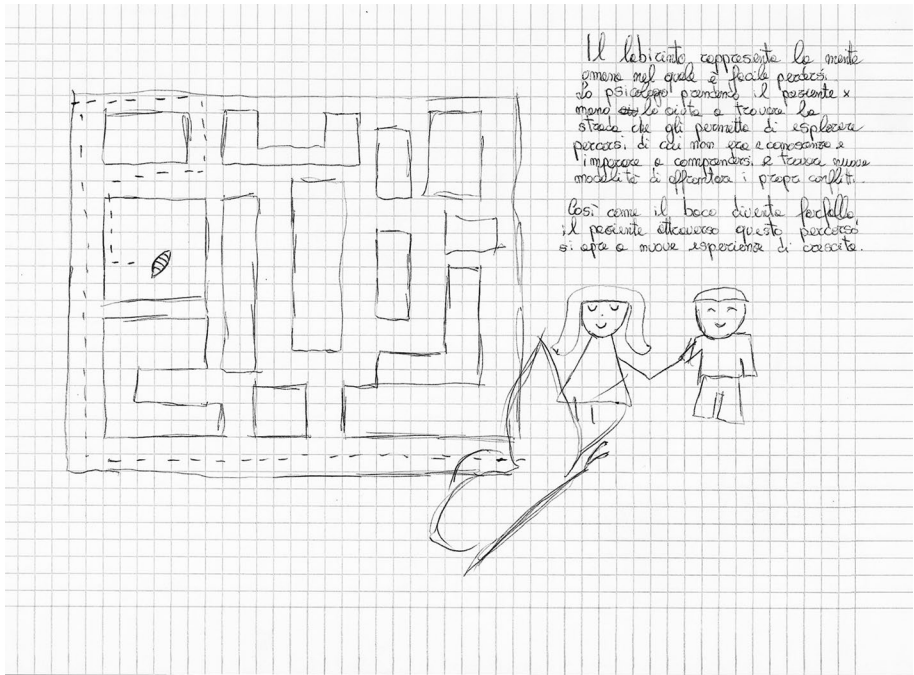 Il labirinto rappresenta la mente
umana nel quale è facile perdersi.
Lo psicologo prendendo il paziente x
mano lo aiuta a trovare la
strada che gli permetta di esplorare
percorsi di cui non era a conoscenza e
imparare a comprendersi e trovare nuove
modalità di affrontare i propri conflitti.
Così come il baco diventa farfalla,
il paziente attraverso questo percorso
si apre a nuove esperienze di crescita.